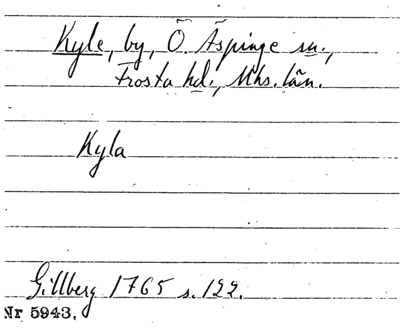 Kyle, by, Ö. Äspinge sn.,
Frosta hd., Mhs. län.
Kyla
Gillberg 1765 s. 122.
Nr 5943.